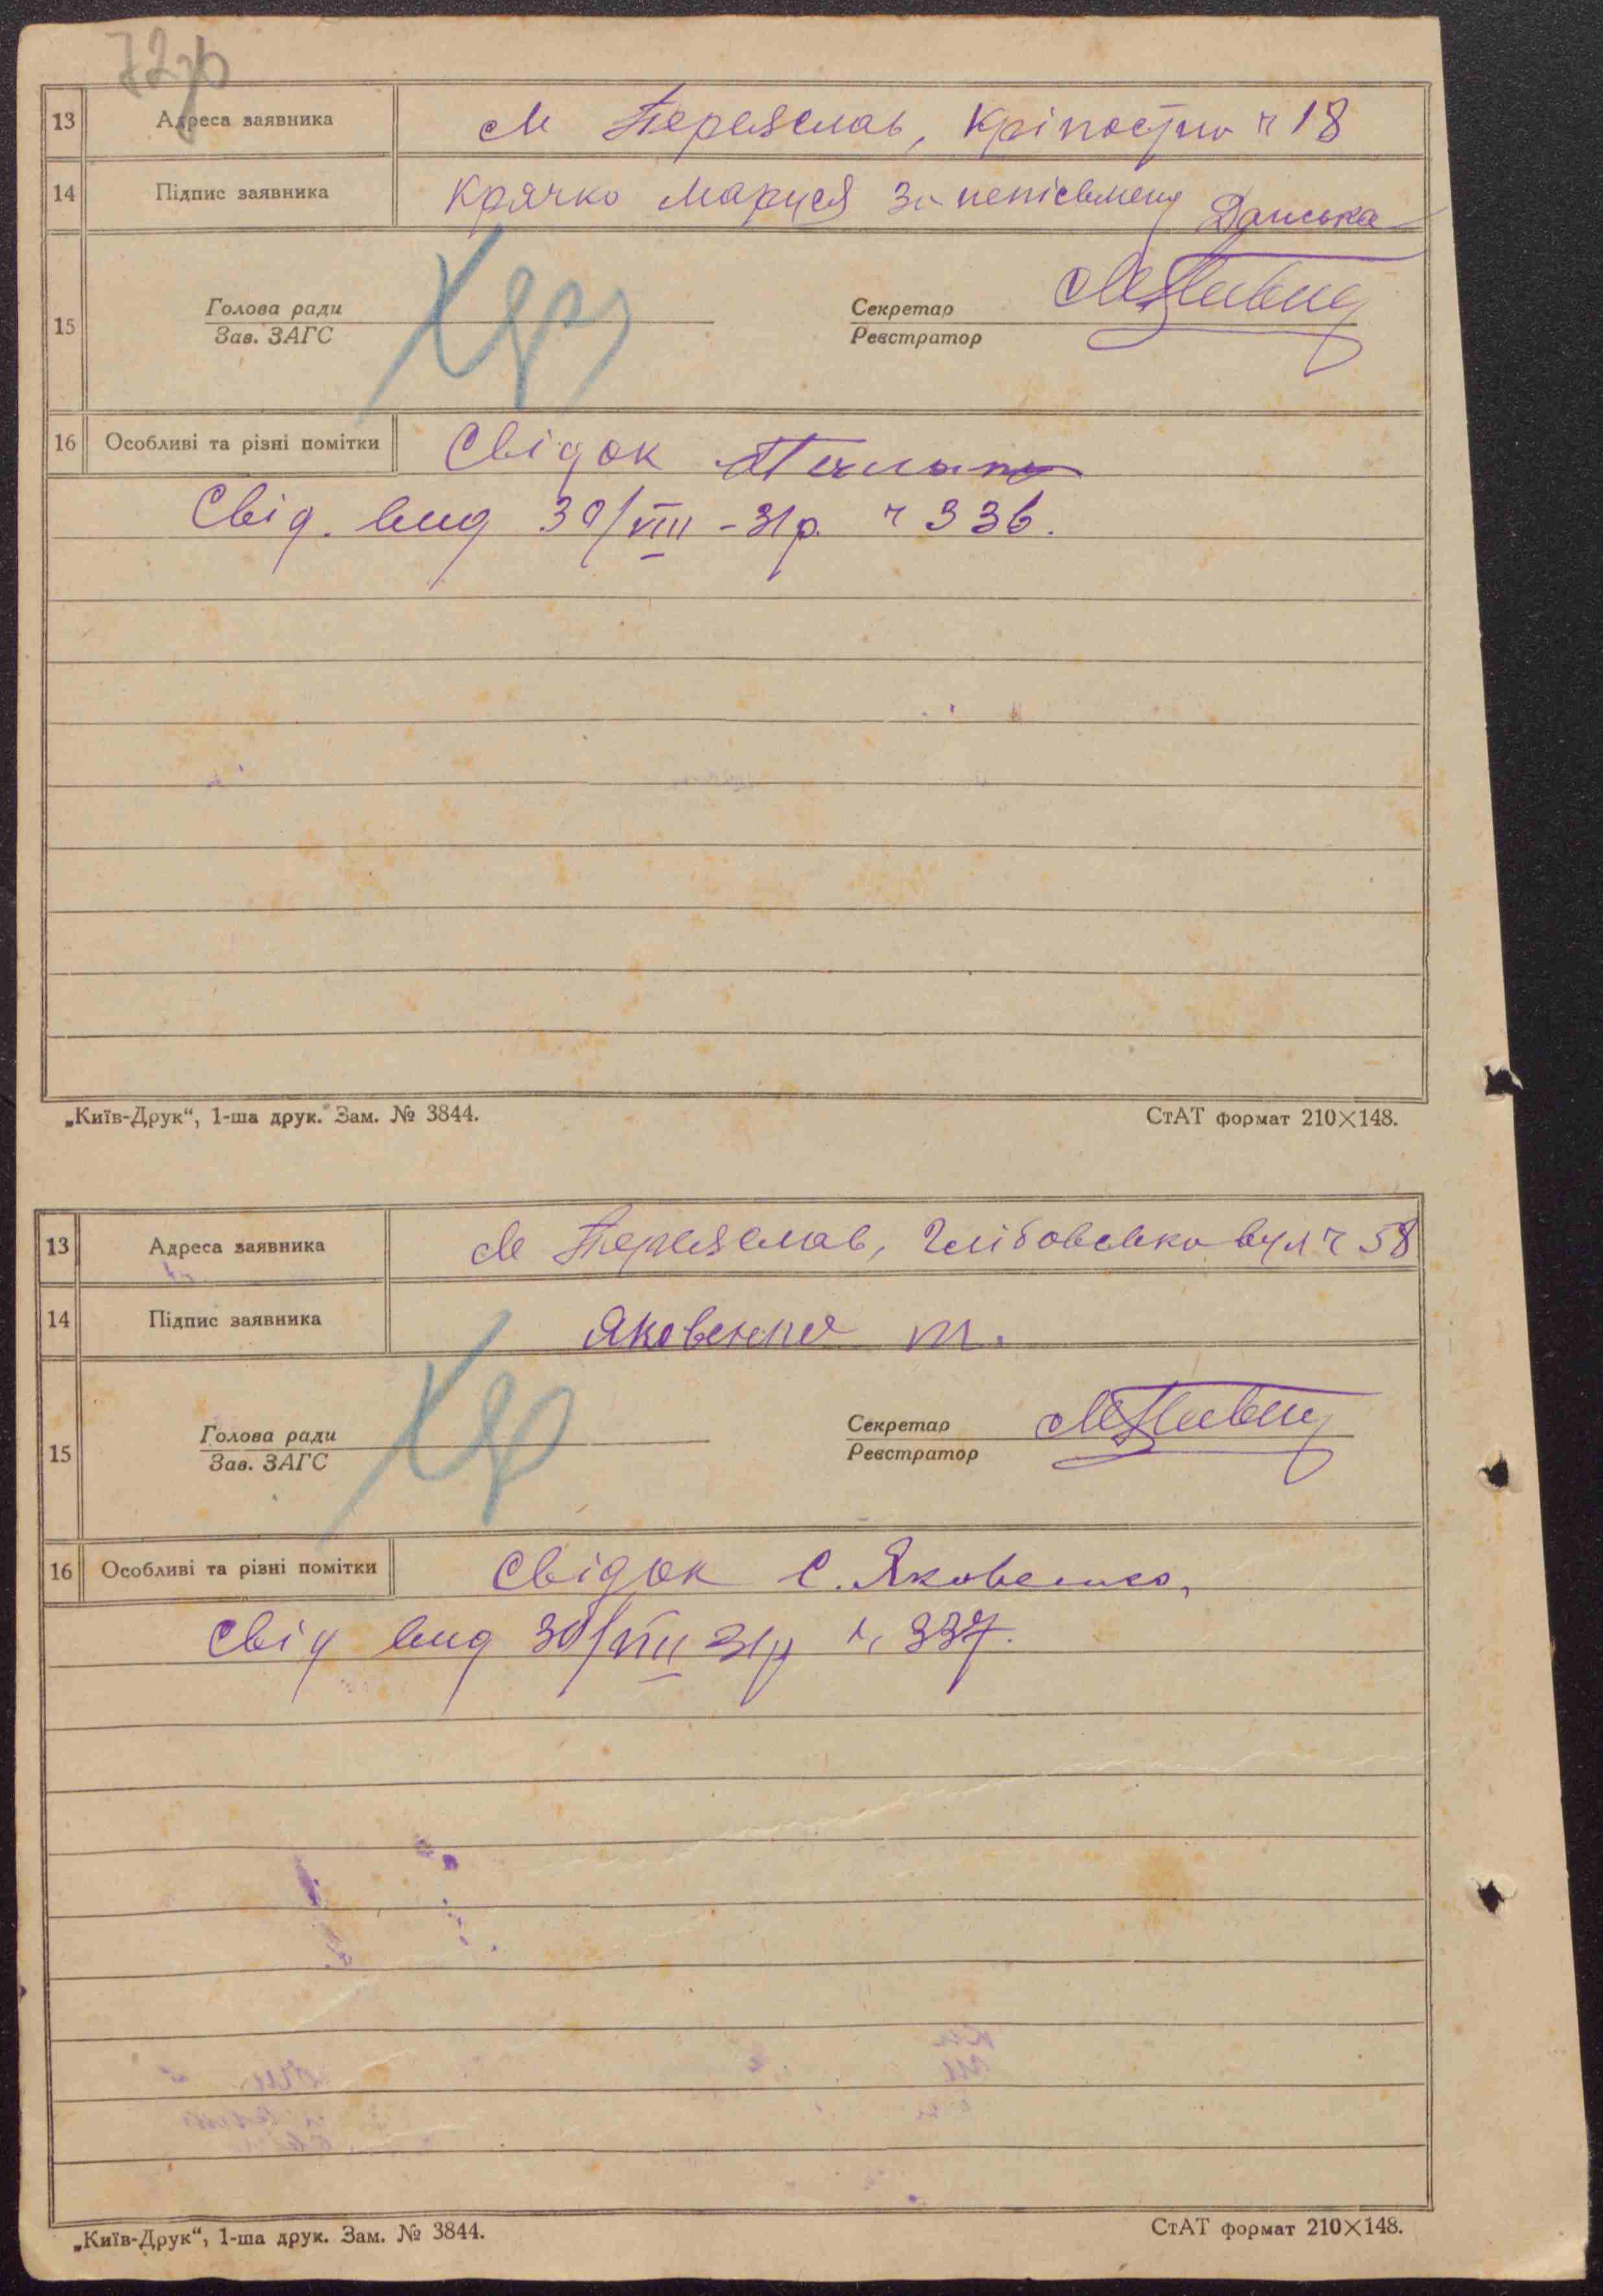 72зв
13 Адреса заявника м Переяслав, Кріпостна ч 18
14 Підпис заявника Крячко Маруся За непісьмену Данська
Голова ради Секретар
15
Зав. ЗАГС Реєстратор
16 Особливі та різні помітки Свідок
Свід. вид 30/VIII - 31р. ч 336.
„Київ-Друк“, 1-ша друк. Зам. № 3844. СтАТ формат 210×148.
13 Адреса заявника м Переяслав, вул ч 58
14 Підпис заявника Яковенко т.
Голова ради Секретар
15
Зав. ЗАГС Реєстратор
16 Особливі та різні помітки Свідок С. Яковенко,
Свід вид 30/VIII 31р ч 337.
„Київ-Друк“, 1-ша друк. Зам. № 3844. СтАТ формат 210×148.